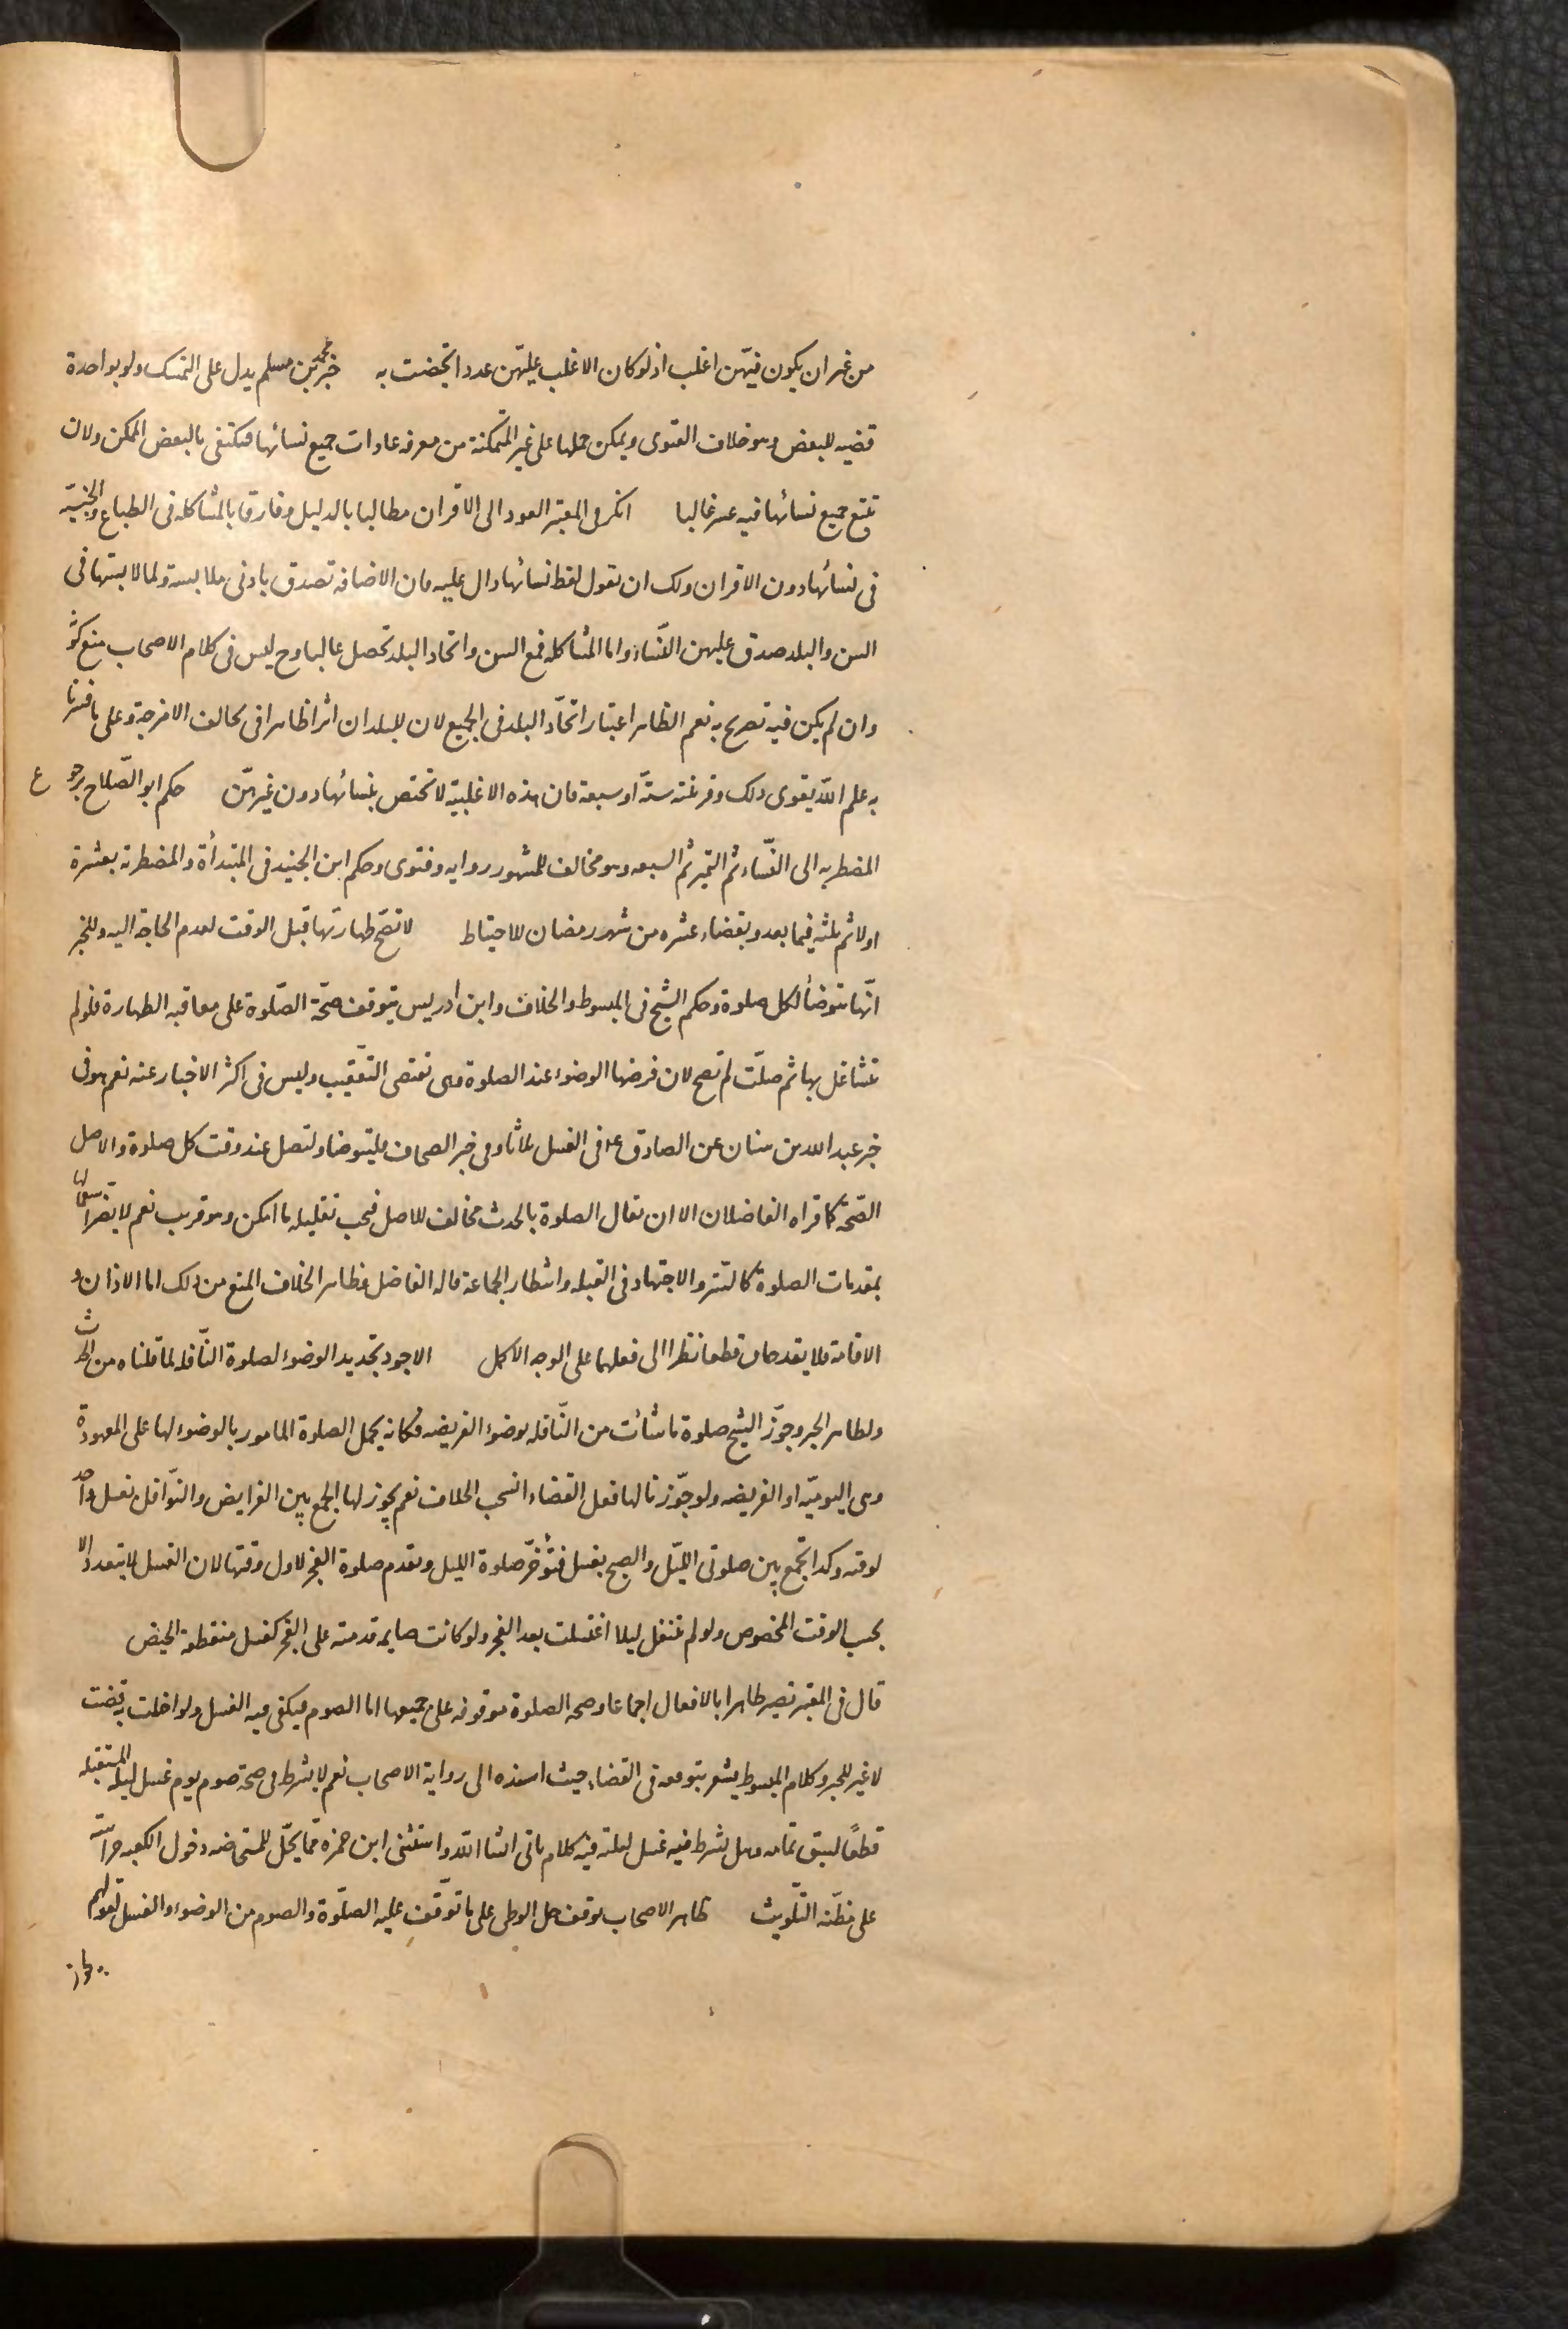 من غير ان يكون فيهن اغلب اذ لو كان الاغلب عليهن عددا تحيضت به خبر محمد بن مسلم يدل على التمسك ولو بواحدة
قضيه للبعض وهو خلاف الفتوى ويمكن حملها على غير المتمكنة من معرفه عادات جميع نسائها فيكتفى بالبعض الممكن ولان
تتبع جميع نسائها فيه عسر غالبا انكر فى المعتبر العود الى الاقران مطالبا بالدليل وفارقا بالمشاكله فى الطباع والجنسية
فى نسائها دون الاقران ولك ان تقول لفظ نسائها دال عليه فان الاضافه تصدق بادنى ملابسة ولما لابستها فى
السن والبلد صدق عليهن النساء واما المشاكله فمع السن واتحاد البلد تحصل غالبا وح ليس فى كلام الاصحاب منع
وان لم يكن فيه تصريح به نعم الظاهر اعتبار اتحاد البلد فى الجميع لان للبلدان اثرا ظاهرا فى تخالف الامزجة وعلى ما فسرنا
به علم الله يقوى ذلك وفرغته ستة او سبعة فان هذه الاغلبية لا تختص بنسائها دون غيرهن حكم ابو الصلاح برجوع
المضطربه الى النساء ثم التميز ثم السبعه وهو مخالف للمشهور روايه وفتوى وحكم ابن الجنيد فى المبتدأة والمضطربة بعشرة
اولا ثم ثلثه فيما بعد وبقضاء عشره من شهر رمضان للاحتياط لا تصح طهارتها قبل الوقت لعدم الحاجة اليه وللخبر
انها تتوضأ لكل صلوة وحكم الشيخ فى المبسوط والخلاف وابن ادريس بتوقف صحة الصلوة على معاقبه الطهارة فلو لم
تتشاغل بها ثم صلت لم تصح لان فرضها الوضوء عند الصلوة وهى تقتضى التعقيب وليس فى اكثر الاخبار عنه نعم هو فى
خبر عبد الله بن سنان عن الصادق ع فى الغسل ثلاثا وفى خبر الصحاف فلتتوضأ ولتصل عند وقت كل صلوة والاصل
الصحة كما قراه الفاضلان الا ان يقال الصلوة بالحدث مخالف للاصل فيجب تقليله ما امكن وهو قريب نعم لا يضر اشتغالها
بمقدمات الصلوة كالستر والاجتهاد فى القبله وانتظار الجماعة قاله الفاضل وظاهر الخلاف المنع من ذلك اما الاذان و
الاقامة فلا يقدحان قطعا نظرا الى فعلهما على الوجه الاكمل الاجود تجديد الوضوء لصلوة النافلة لما قلناه من الحدث
ولظاهر الخبر وجوز الشيخ صلوة ما شاءت من النافله بوضوء الفريضه فكانه يحمل الصلوة المامور بالوضوء لها على المعهودة
وهى اليومية او الفريضه ولو جوزنا لها فعل القضاء انسحب الخلاف نعم يجوز لها الجمع بين الفرايض والنوافل بغسل واحد
لوقته وكذا تجمع بين صلوتى الليل والصبح بغسل فتؤخر صلوة الليل وتقدم صلوة الفجر لاول وقتها لان الغسل لا يتعدد الا
بحسب الوقت المخصوص ولو لم تتنفل ليلا اغتسلت بعد الفجر ولو كانت صايمه قدمته على الفجر كغسل منقطعة الحيض
قال فى المعتبر تصير طاهرا بالافعال اجماعا وصحه الصلوة موقوفه على جميعها اما الصوم فيكفى فيه الغسل ولو اخلت به قضت
لا غير للخبر وكلام المبسوط يشعر بتوقفه فى القضاء حيث اسنده الى رواية الاصحاب نعم لا يشترط فى صحة صوم يوم غسل ليلته المستقبله
قطعًا لسبق تمامه وهل يشترط فيه غسل ليلته فيه كلام ياتى انشا الله واستثنى ابن حمزه مما يحل للمستحاضه دخول الكعبه حراسة
على مظنه التلويث ظاهر الاصحاب توقف حل الوطى على ما توقف عليه الصلوة والصوم من الوضوء والغسل لقولهم